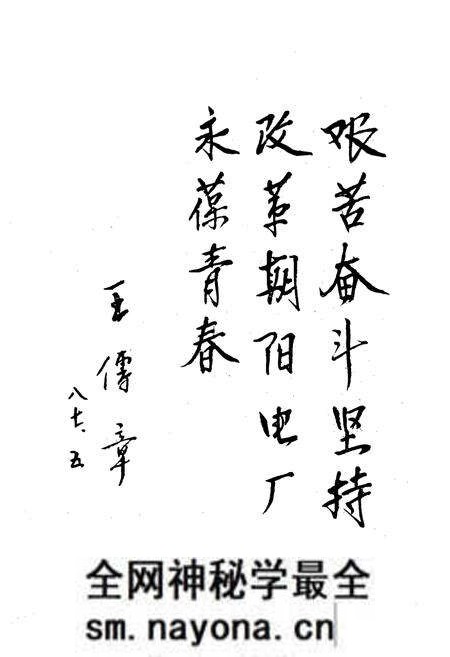 艰苦奋斗坚持
改革朝阳电厂
永葆青春
王 章
八七.五
全网神秘学最全
sm.nayona.cn